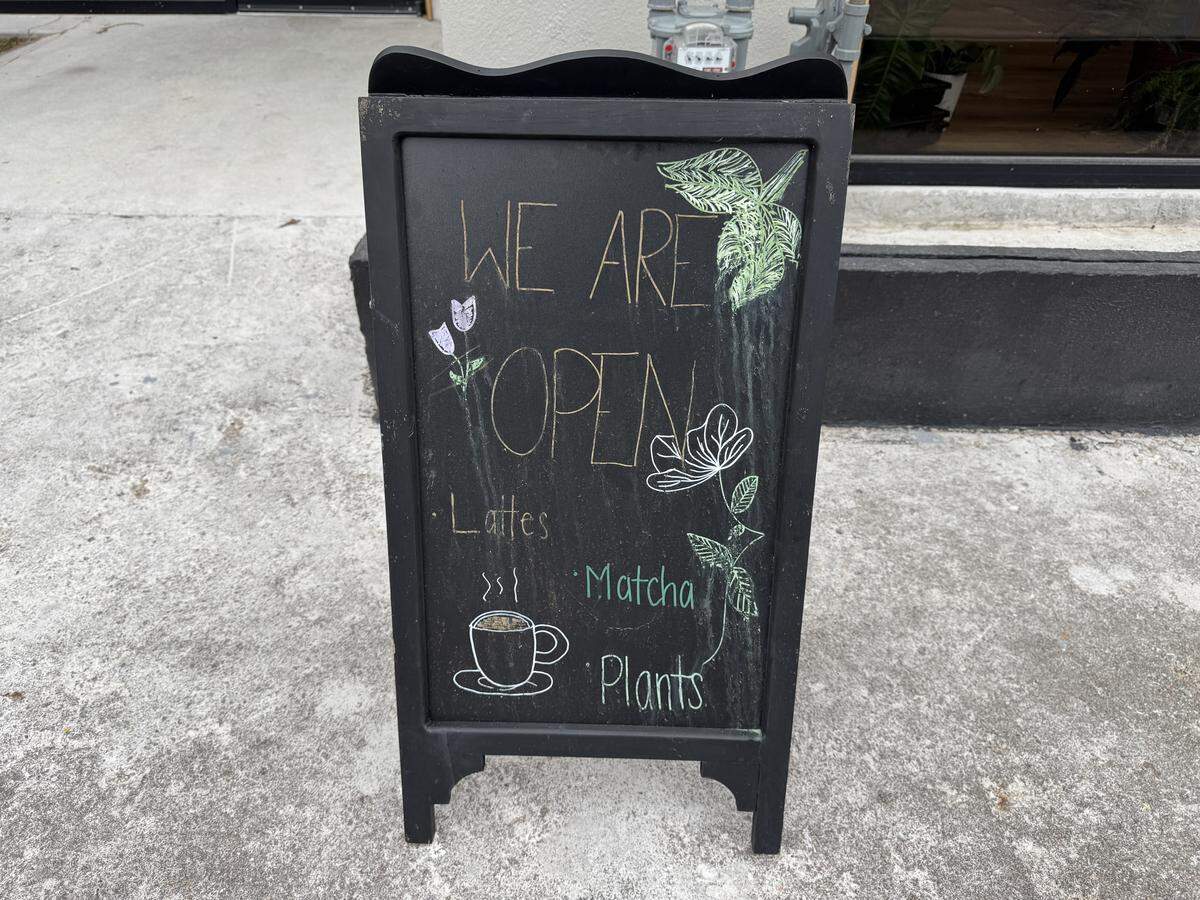 WE ARE
OPEN
· Lattes
· Matcha
· Plants